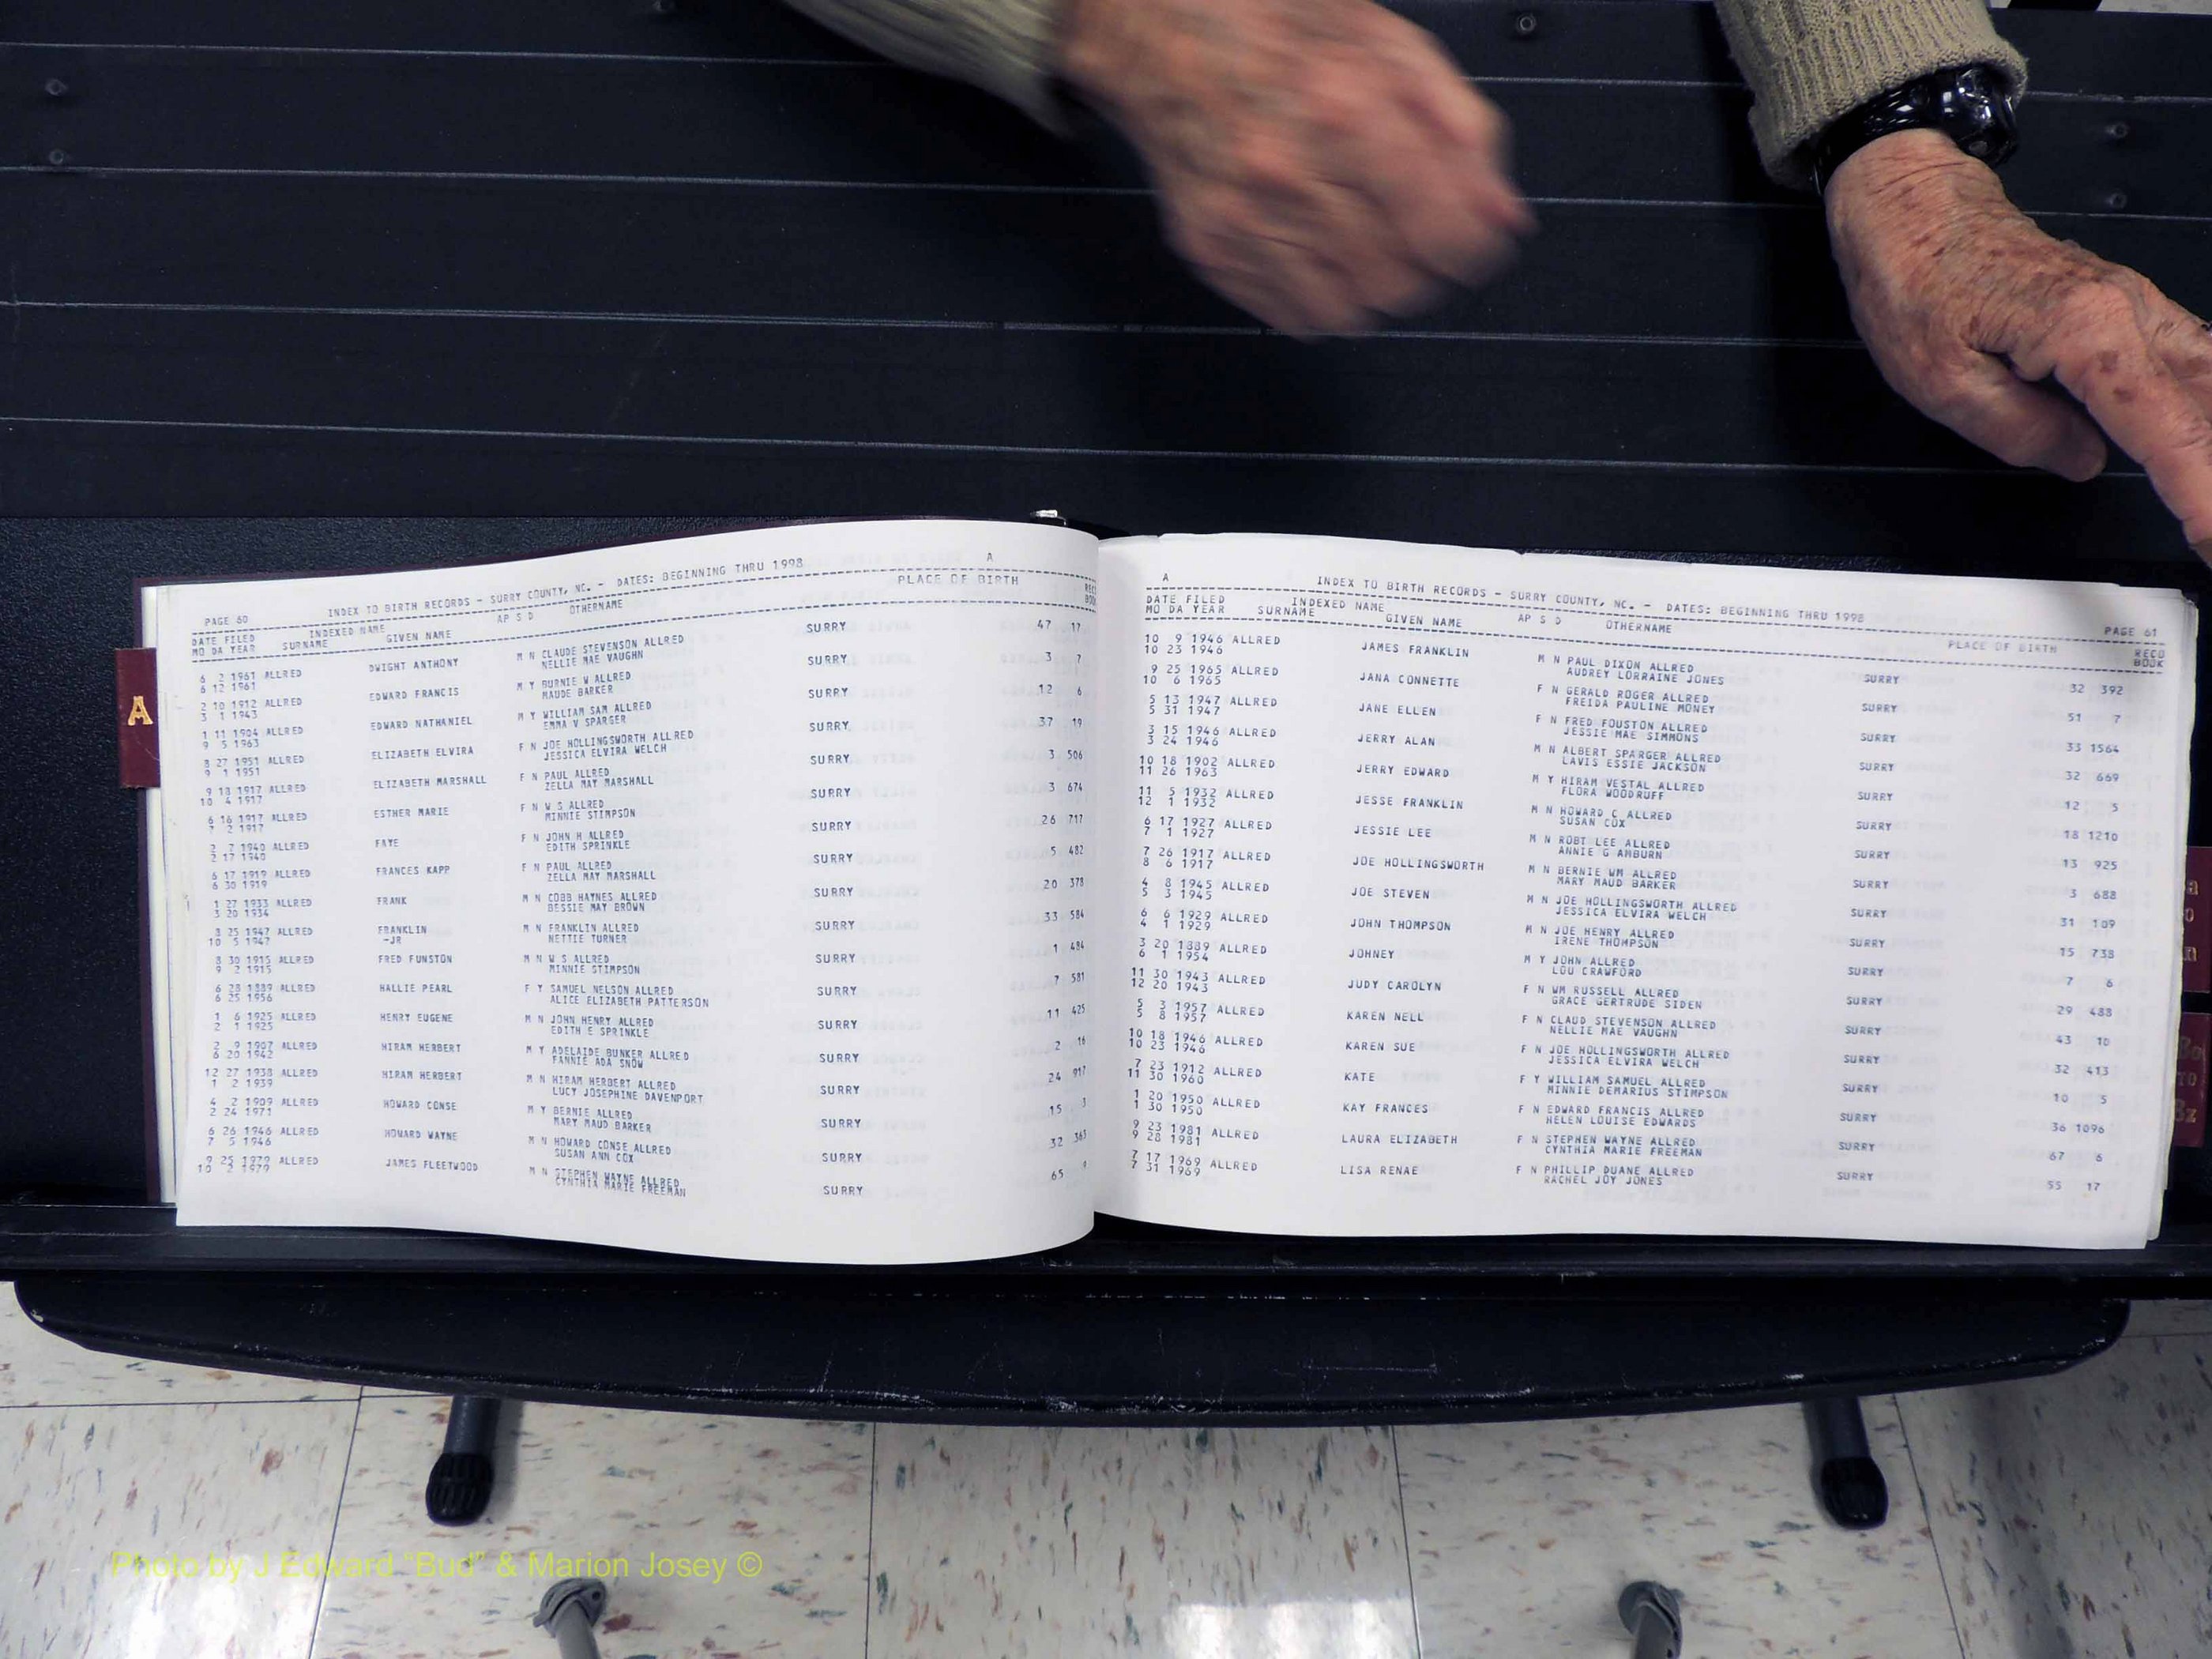 A
PAGE 60 INDEX TO BIRTH RECORDS - SURRY COUNTY, NC. - DATES: BEGINNING THRU 1998 A
DATE FILED INDEXED NAME AP S D OTHERNAME PLACE OF BIRTH
MO DA YEAR SURNAME GIVEN NAME
6 2 1961 ALLRED DWIGHT ANTHONY M N CLAUDE STEVENSON ALLRED SURRY 47 17
6 12 1961 NELLIE MAE VAUGHN
2 10 1912 ALLRED EDWARD FRANCIS M Y BURNIE W ALLRED SURRY 3 7
3 1 1943 MAUDE BARKER
1 11 1904 ALLRED EDWARD NATHANIEL M Y WILLIAM SAM ALLRED SURRY 12 6
9 5 1963 EMMA V SPARGER
8 27 1951 ALLRED ELIZABETH ELVIRA F N JOE HOLLINGSWORTH ALLRED SURRY 37 19
9 1 1951 JESSICA ELVIRA WELCH
9 18 1917 ALLRED ELIZABETH MARSHALL F N PAUL ALLRED SURRY 3 506
10 4 1917 ZELLA MAY MARSHALL
6 16 1917 ALLRED ESTHER MARIE F N W S ALLRED SURRY 3 674
7 2 1917 MINNIE STIMPSON
2 7 1940 ALLRED FAYE F N JOHN H ALLRED SURRY 26 717
2 17 1940 EDITH SPRINKLE
6 17 1919 ALLRED FRANCES KAPP F N PAUL ALLRED SURRY 5 482
6 30 1919 ZELLA MAY MARSHALL
1 27 1933 ALLRED FRANK M N COBB HAYNES ALLRED SURRY 20 378
3 20 1934 BESSIE MAY BROWN
8 25 1947 ALLRED FRANKLIN M N FRANKLIN ALLRED SURRY 33 584
10 5 1947 -JR NETTIE TURNER
8 30 1915 ALLRED FRED FUNSTON M N W S ALLRED SURRY 1 484
9 2 1915 MINNIE STIMPSON
6 28 1889 ALLRED HALLIE PEARL F Y SAMUEL NELSON ALLRED SURRY 7 581
6 25 1956 ALICE ELIZABETH PATTERSON
1 6 1925 ALLRED HENRY EUGENE M N JOHN HENRY ALLRED SURRY 11 425
2 1 1925 EDITH E SPRINKLE
2 9 1907 ALLRED HIRAM HERBERT M Y ADELAIDE BUNKER ALLRED SURRY 2 16
6 20 1942 FANNIE ADA SNOW
12 27 1938 ALLRED HIRAM HERBERT M N HIRAM HERBERT ALLRED SURRY 24 917
1 2 1939 LUCY JOSEPHINE DAVENPORT
4 2 1909 ALLRED HOWARD CONSE M Y BERNIE ALLRED SURRY 15 3
2 24 1971 MARY MAUD BARKER
6 26 1946 ALLRED HOWARD WAYNE M N HOWARD CONSE ALLRED SURRY 32 363
7 5 1946 SUSAN ANN COX
9 25 1979 ALLRED JAMES FLEETWOOD M N STEPHEN WAYNE ALLRED SURRY 65
10 2 1979 CYNTHIA MARIE FREEMAN
A INDEX TO BIRTH RECORDS - SURRY COUNTY, NC. - DATES: BEGINNING THRU 1998 PAGE 61
DATE FILED INDEXED NAME AP S D OTHERNAME PLACE OF BIRTH RECO
MO DA YEAR SURNAME GIVEN NAME BOOK
10 9 1946 ALLRED JAMES FRANKLIN M N PAUL DIXON ALLRED SURRY 32 392
10 23 1946 AUDREY LORRAINE JONES
9 25 1965 ALLRED JANA CONNETTE F N GERALD ROGER ALLRED SURRY 51 7
10 6 1965 FREIDA PAULINE MONEY
5 13 1947 ALLRED JANE ELLEN F N FRED FOUSTON ALLRED SURRY 33 1564
5 31 1947 JESSIE MAE SIMMONS
3 15 1946 ALLRED JERRY ALAN M N ALBERT SPARGER ALLRED SURRY 32 669
3 24 1946 LAVIS ESSIE JACKSON
10 18 1902 ALLRED JERRY EDWARD M Y HIRAM VESTAL ALLRED SURRY 12 5
11 26 1963 FLORA WOODRUFF
11 5 1932 ALLRED JESSE FRANKLIN M N HOWARD C ALLRED SURRY 18 1210
12 1 1932 SUSAN COX
6 17 1927 ALLRED JESSIE LEE M N ROBT LEE ALLRED SURRY 13 925
7 1 1927 ANNIE G AMBURN
7 26 1917 ALLRED JOE HOLLINGSWORTH M N BERNIE WM ALLRED SURRY 3 688
8 6 1917 MARY MAUD BARKER
4 8 1945 ALLRED JOE STEVEN M N JOE HOLLINGSWORTH ALLRED SURRY 31 109
5 3 1945 JESSICA ELVIRA WELCH
6 6 1929 ALLRED JOHN THOMPSON M N JOE HENRY ALLRED SURRY 15 738
4 1 1929 IRENE THOMPSON
3 20 1889 ALLRED JOHNEY M Y JOHN ALLRED SURRY 7 6
6 1 1954 LOU CRAWFORD
11 30 1943 ALLRED JUDY CAROLYN F N WM RUSSELL ALLRED SURRY 29 488
12 20 1943 GRACE GERTRUDE SIDEN
5 3 1957 ALLRED KAREN NELL F N CLAUD STEVENSON ALLRED SURRY 43 10
5 8 1957 NELLIE MAE VAUGHN
10 18 1946 ALLRED KAREN SUE F N JOE HOLLINGSWORTH ALLRED SURRY 32 413
10 23 1946 JESSICA ELVIRA WELCH
7 23 1912 ALLRED KATE F Y WILLIAM SAMUEL ALLRED SURRY 10 5
11 30 1960 MINNIE DEMARIUS STIMPSON
1 20 1950 ALLRED KAY FRANCES F N EDWARD FRANCIS ALLRED SURRY 36 1096
1 30 1950 HELEN LOUISE EDWARDS
9 23 1981 ALLRED LAURA ELIZABETH F N STEPHEN WAYNE ALLRED SURRY 67 6
9 28 1981 CYNTHIA MARIE FREEMAN
7 17 1969 ALLRED LISA RENAE F N PHILLIP DUANE ALLRED SURRY 55 17
7 31 1969 RACHEL JOY JONES
Photo by J Edward "Bud" & Marion Josey ©